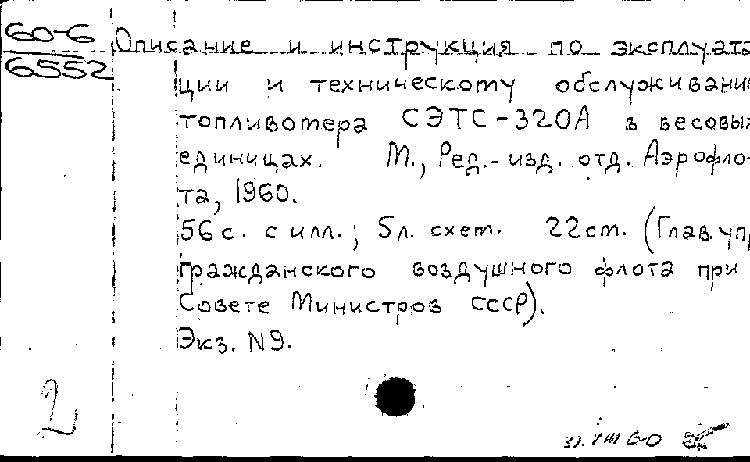 60-6
6552
Описание и инструкция по эксплуата
ции и техническому обслуживани
топливомера СЭТС-320А в весовы
единицах. М., Ред.-изд. отд. Аэрофло-
та, 1960.
56с. с илл.; 5л. схем. 22см. (Глав. упр
гражданского воздушного флота при
Совете Министров СССР).
Экз. N9.
2